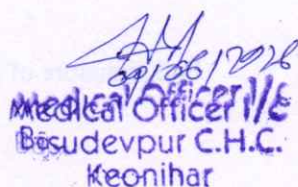 Medical Officer I/c
Basudevpur C.H.C.
Keonjhar